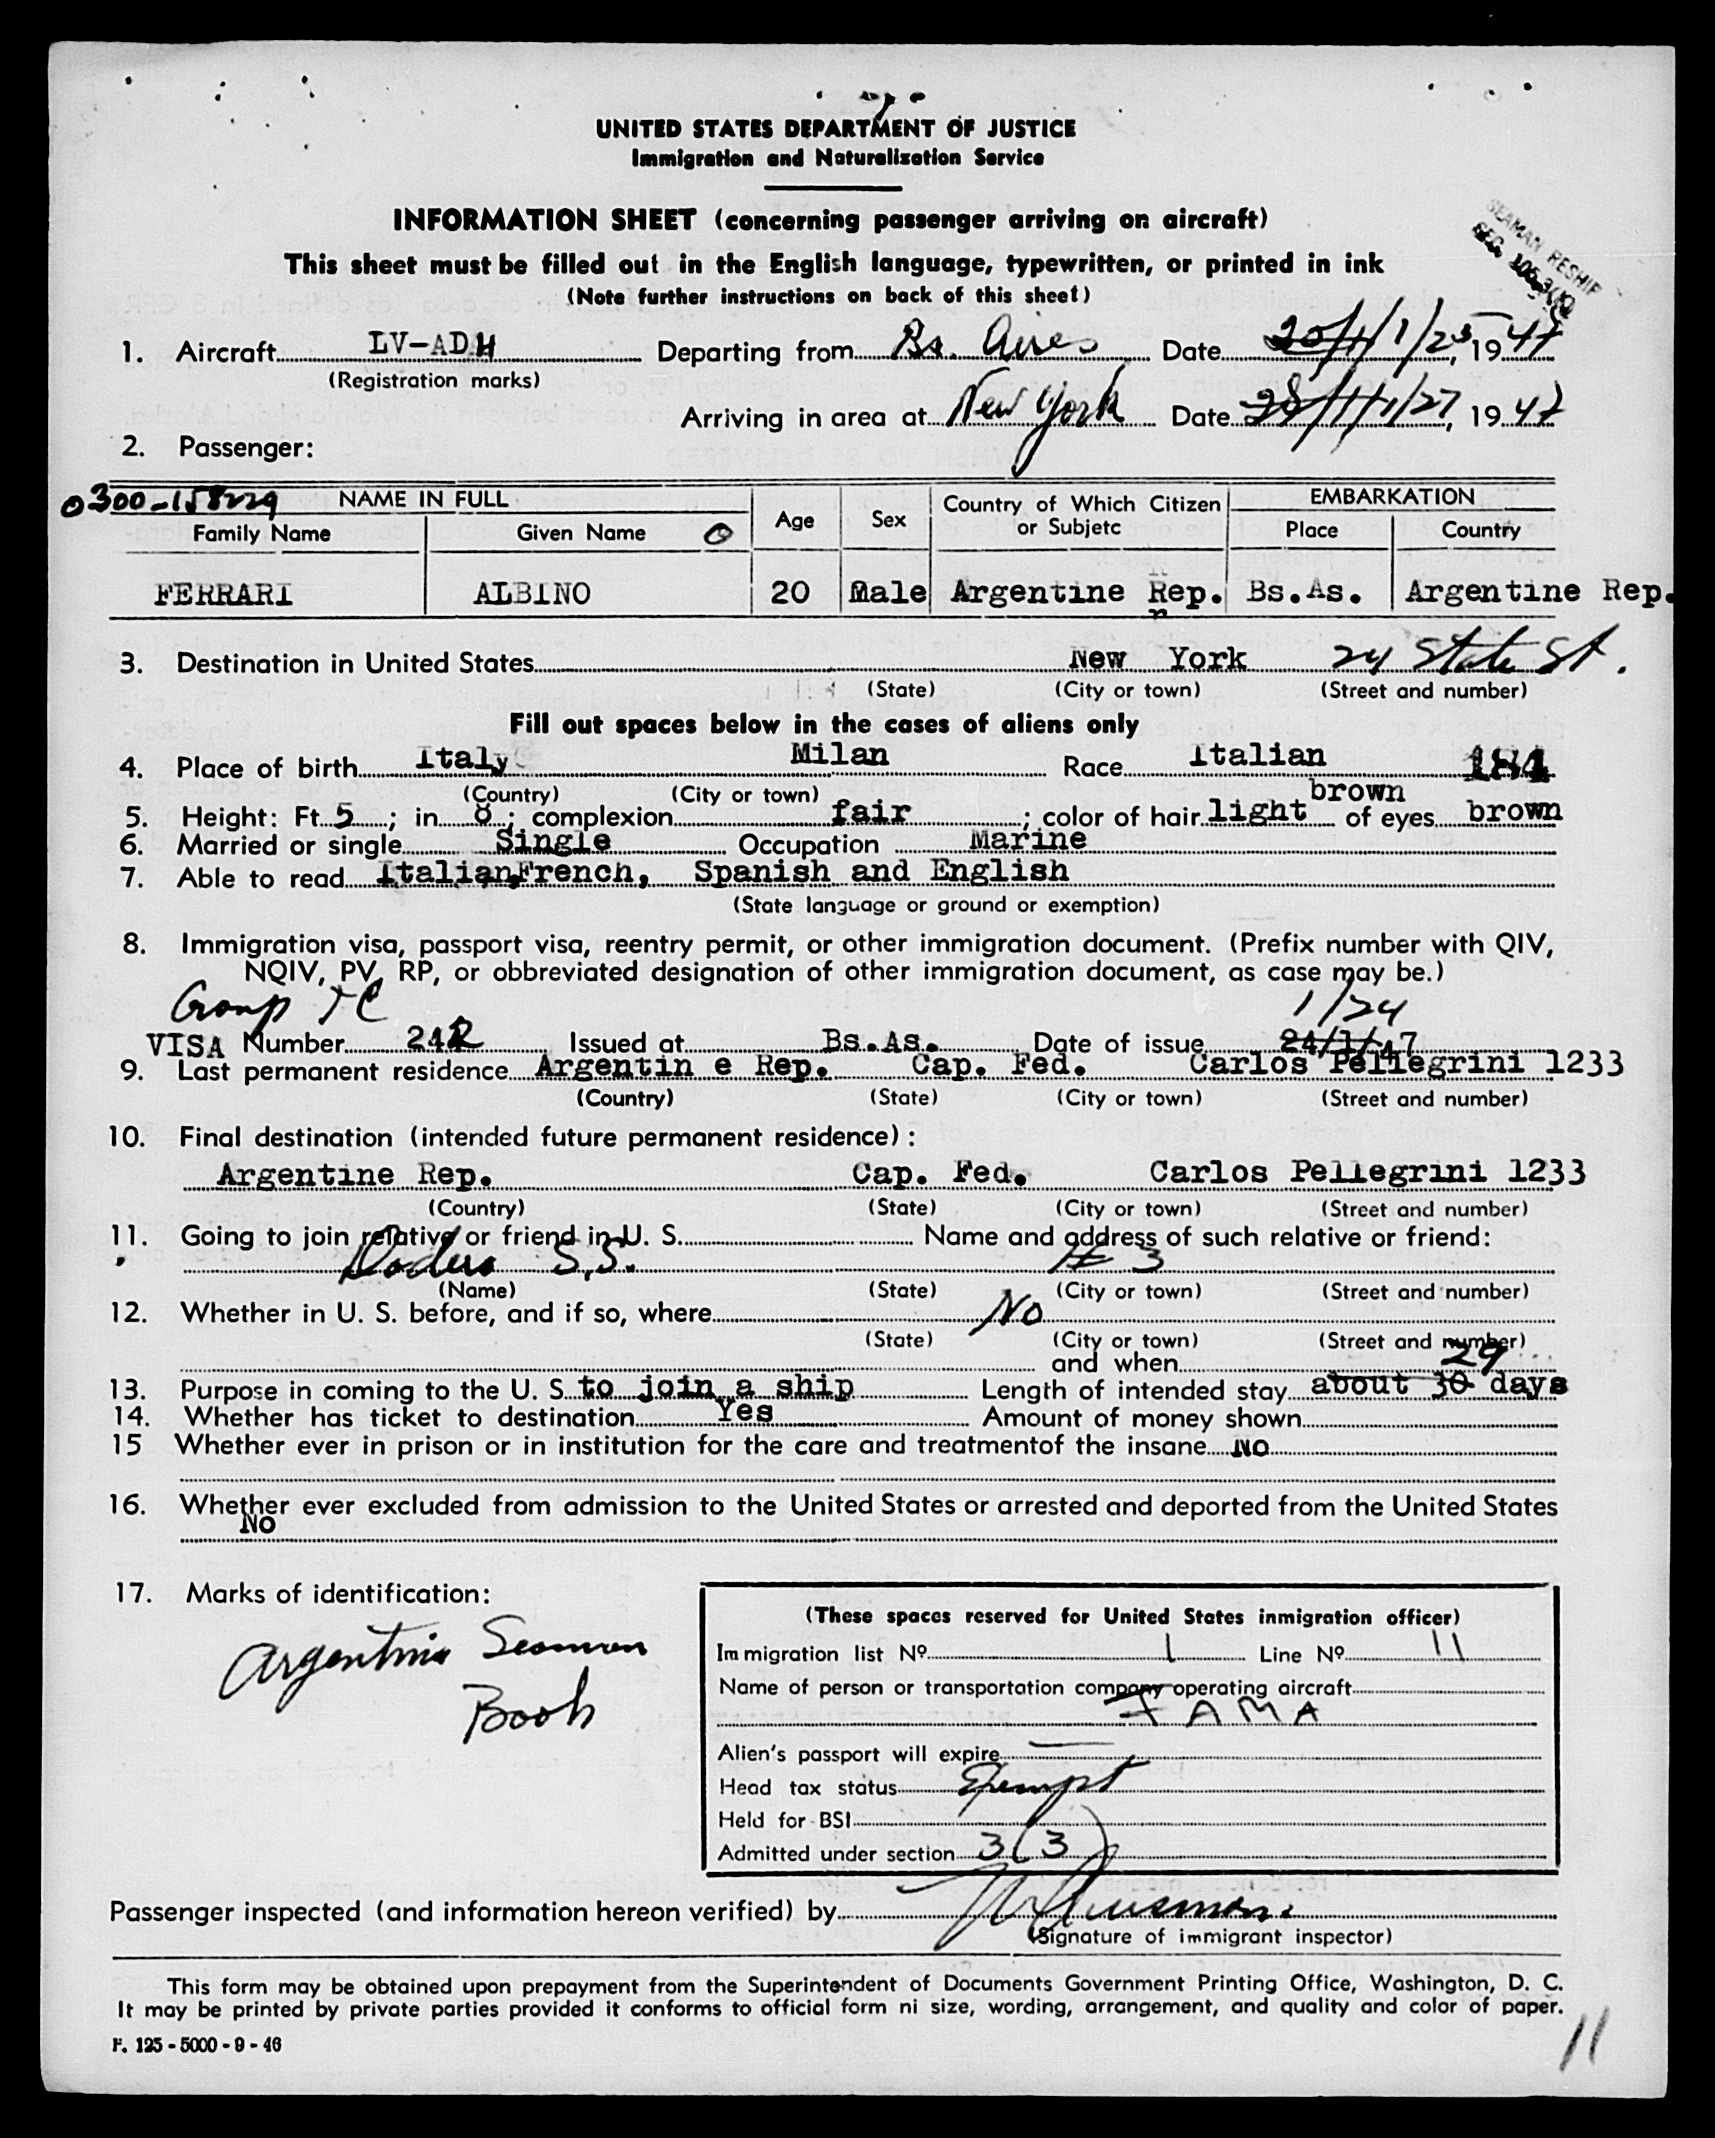 UNITED STATES DEPARTMENT OF JUSTICE
Immigration and Naturalization Service
INFORMATION SHEET (concerning passenger arriving on aircraft)
This sheet must be filled out in the English language, typewritten, or printed in ink
(Note further instructions on back of this sheet)
SEAMAN RESHIP
1. Aircraft LV-ADH Departing from Bs. Aires Date 1/25, 1947
(Registration marks)
Arriving in area at New York Date 1/27, 1947
2. Passenger:
0300-158229 NAME IN FULL Age Sex Country of Which Citizen or Subjetc EMBARKATION
Family Name Given Name Place Country
FERRARI ALBINO 20 Male Argentine Rep. Bs.As. Argentine Rep.
3. Destination in United States New York 24 State St.
(State) (City or town) (Street and number)
Fill out spaces below in the cases of aliens only
4. Place of birth Italy Milan Race Italian 184
(Country) (City or town) brown
5. Height: Ft. 5; in. 8; complexion fair; color of hair light of eyes brown
6. Married or single Single Occupation Marine
7. Able to read Italian,French, Spanish and English
(State language or ground or exemption)
8. Immigration visa, passport visa, reentry permit, or other immigration document. (Prefix number with QIV,
NQIV, PV, RP, or obbreviated designation of other immigration document, as case may be.)
Group TC 1/24
VISA Number 242 Issued at Bs.As. Date of issue 24/1/47
9. Last permanent residence Argentin e Rep. Cap. Fed. Carlos Pellegrini 1233
(Country) (State) (City or town) (Street and number)
10. Final destination (intended future permanent residence):
Argentine Rep. Cap. Fed. Carlos Pellegrini 1233
(Country) (State) (City or town) (Street and number)
11. Going to join relative or friend in U. S. Name and address of such relative or friend:
Dodero S.S. # 3
(Name) (State) (City or town) (Street and number)
12. Whether in U. S. before, and if so, where No
(State) (City or town) (Street and number)
and when 29
13. Purpose in coming to the U. S. to join a ship Length of intended stay about 30 days
14. Whether has ticket to destination Yes Amount of money shown
15 Whether ever in prison or in institution for the care and treatmentof the insane NO
16. Whether ever excluded from admission to the United States or arrested and deported from the United States
NO
17. Marks of identification:
Argentine Seaman
Book
(These spaces reserved for United States inmigration officer)
Immigration list Nº 1 Line Nº 11
Name of person or transportation company operating aircraft
FAMA
Alien's passport will expire
Head tax status Exempt
Held for BSI
Admitted under section 3(3)
Passenger inspected (and information hereon verified) by
(Signature of immigrant inspector)
This form may be obtained upon prepayment from the Superintendent of Documents Government Printing Office, Washington, D. C.
It may be printed by private parties provided it conforms to official form ni size, wording, arrangement, and quality and color of paper.
F. 125 - 5000 - 9 - 46
11